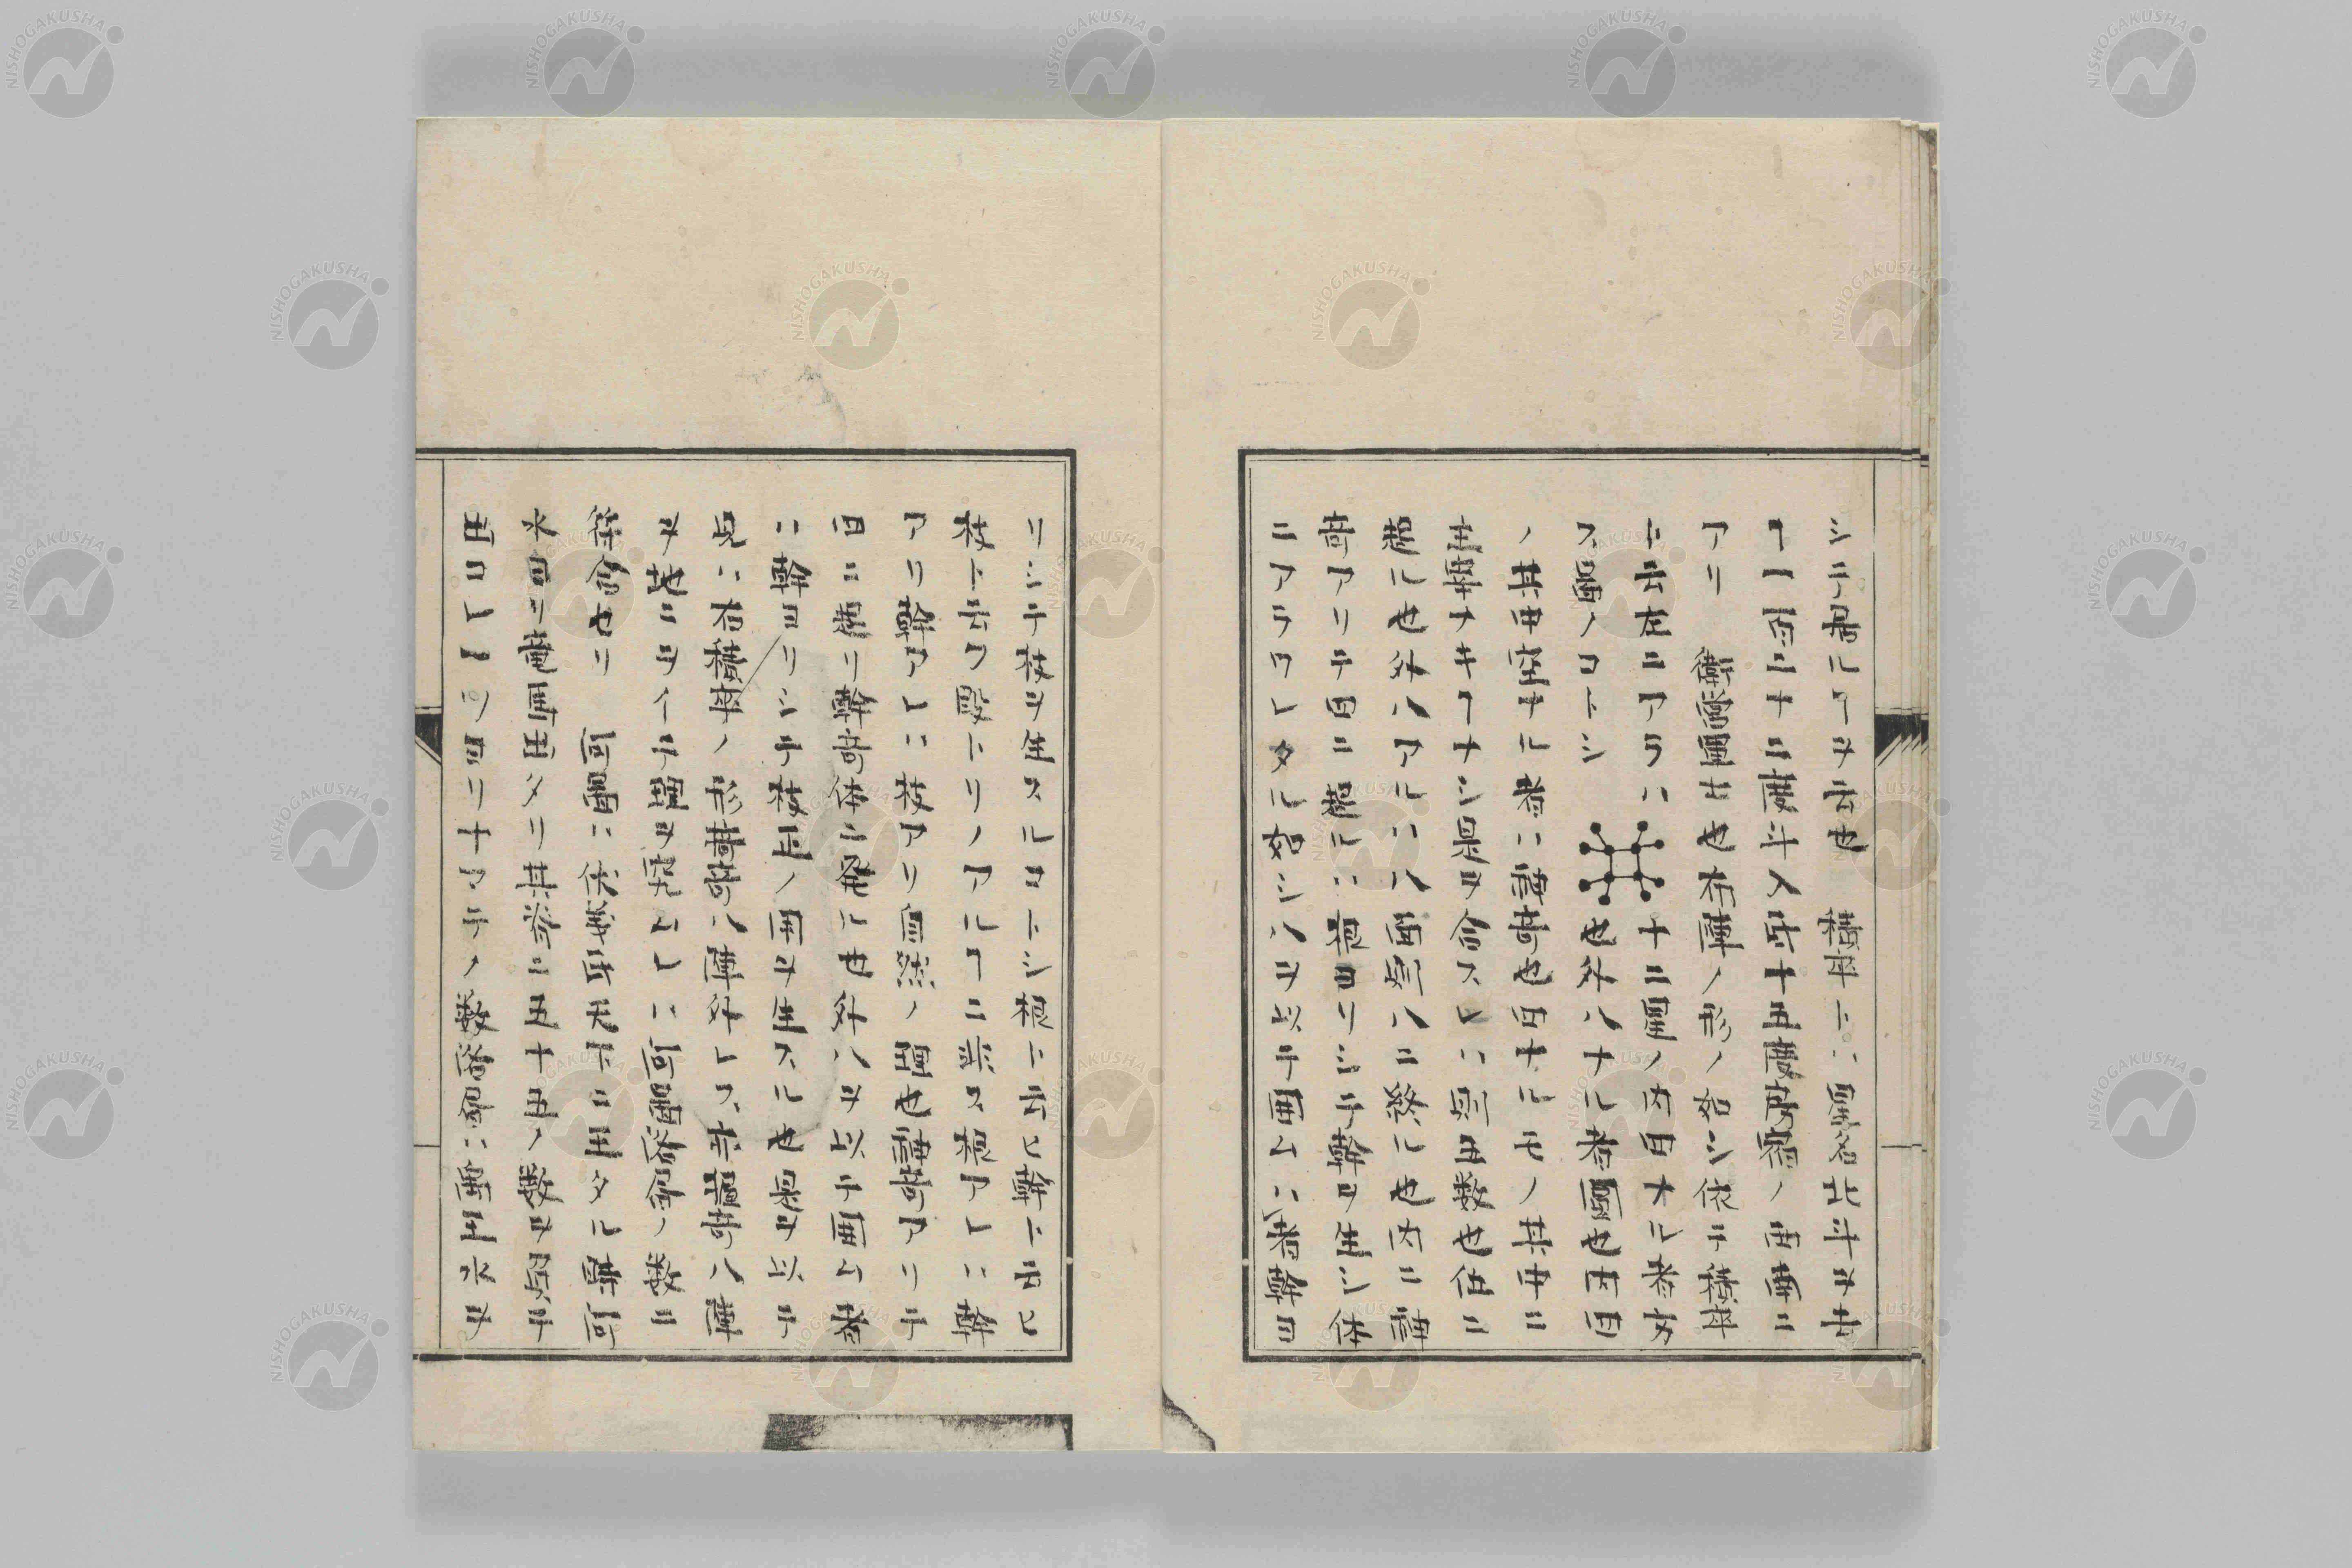 シテ居ルヿヲ云也　積卒トハ星名北斗ヲ去
ヿ一百二十二度斗入宿十五度騎官ノ西南ニ
アリ　衛宿星也右陣ノ形ノ如シ依テ積卒
ト云右ニアラハ十二星ノ内自大ル者
ス圖ノコトシ也外ハナル者圓也内自
ノ其ナル者ハ奇也ナルモノ其中ニ
ナキヿナシ是ヲ合スレハ則五数也体ニ
起ル也外ハアルハ八面則八ニ終ル也内ニ
奇アリテ四ニ起ルハ根ヨリシテ幹ヲ生シ体
ニアラワレタル如シ八ヲ以テ囲ムハ者幹ヨ
リシテ枝ヲ生スルコトシ根ト云ヒ幹ト云ヒ
枝ト云ワリノアルヿニ非ス根アレハ幹
アリ幹アレハ枝アリ自然ノ理也奇アリテ
四ニ起リ幹奇体ニ発ル也外八ヲ以テ囲ム者
ハ幹ヨリシテ枝正ノ用ヲ生スル也是ヲ以テ
見ハ右積卒ノ形握奇八陣外レス亦握奇八陣
ヲニヲイテ理ヲ究ムレハ河圖洛書ノ数ニ
符合セリ　河圖ハ伏犧氏天下ニ王タル時河
水ヨリ竜馬出タリ其背ニ五十五ノ数ヲ負テ
出ノ数洛書ハ禹王水ヲ